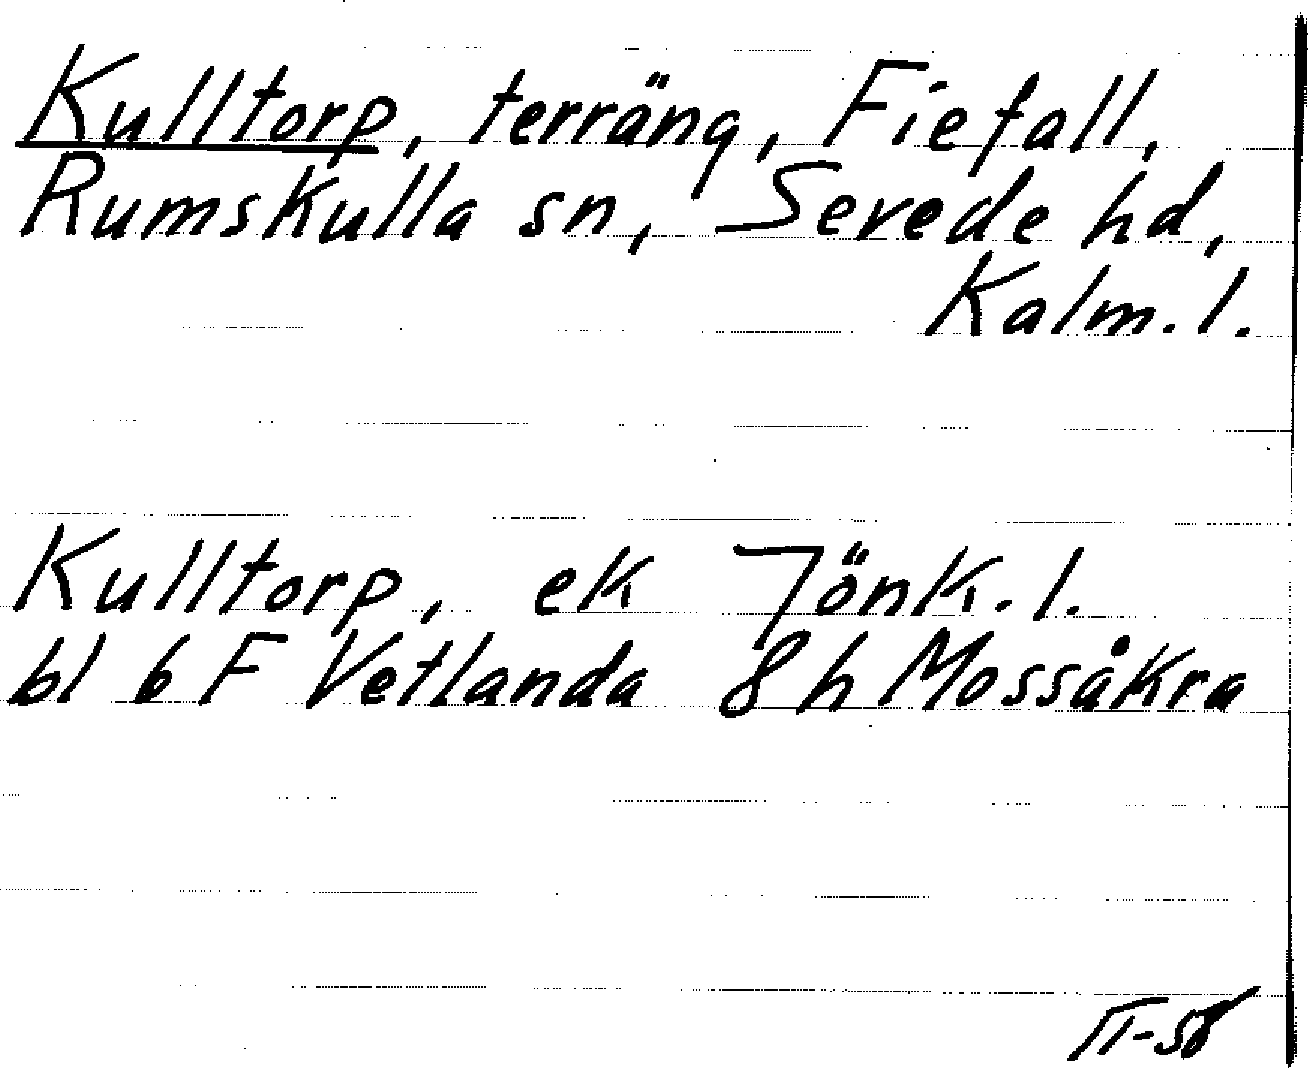 Kulltorp, terräng, Fiefall,
Rumskulla sn, Sevede hd,
Kalm. l.
Kulltorp, ek Jönk. l.
bl 6 F Vetlanda 8 h Mossåkra
II-58